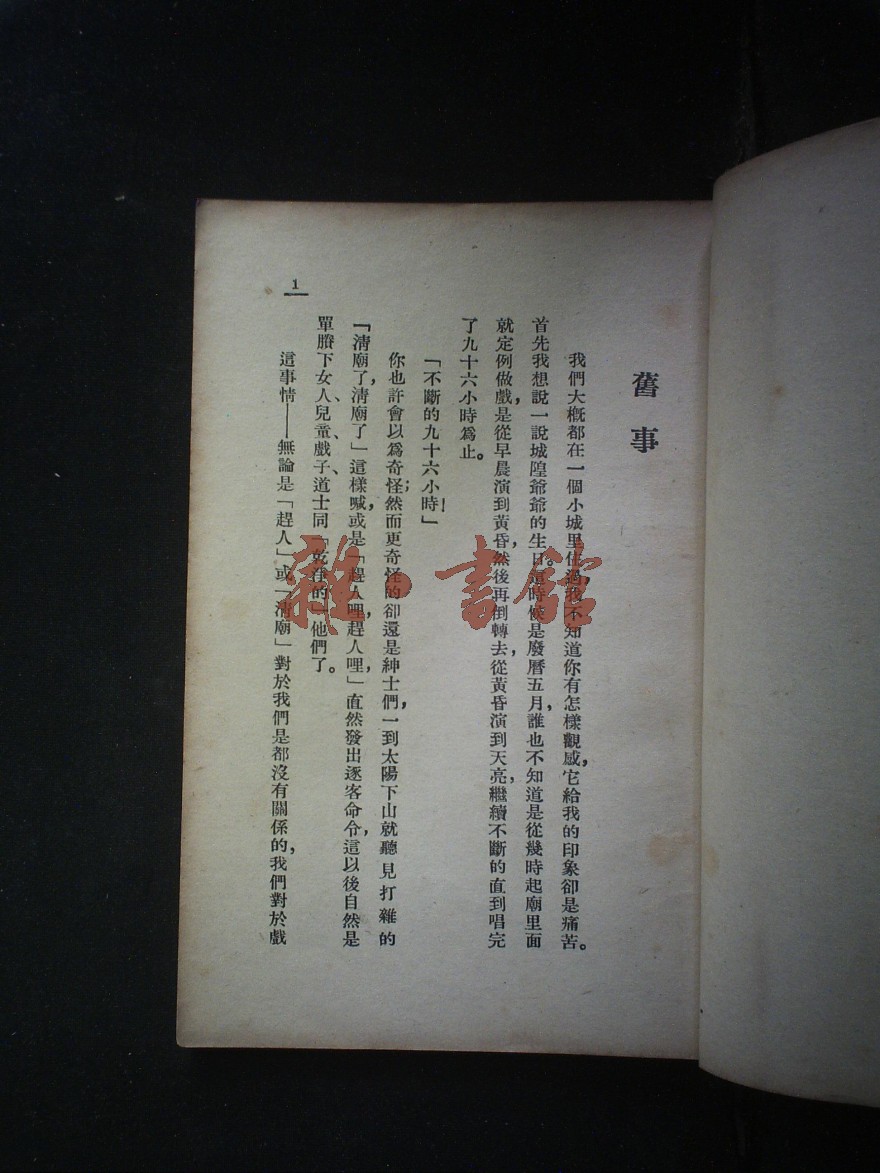 舊事
我們大概都在一個小城里住過，我不知道你有怎樣觀感，它給我的印象卻是痛苦。
首先我想說一說城隍爺爺的生日。這時候是廢曆五月，誰也不知道是從幾時起廟里面
就定例做戲，是從早晨演到黃昏，然後再倒轉去，從黃昏演到天亮，繼續不斷的直到唱完
了九十六小時爲止。
「不斷的九十六小時！」
你也許會以爲奇怪；然而更奇怪的卻還是紳士們，一到太陽下山就聽見打雜的
「清廟了，清廟了」這樣喊，或是「趕人哩，趕人哩，」直然發出逐客命令，這以後自然是
單賸下女人、兒童、戲子、道士同「乾淨的」他們了。
這事情——無論是「趕人」或「清廟」對於我們是都沒有關係的，我們對於戲
1
雜·書館